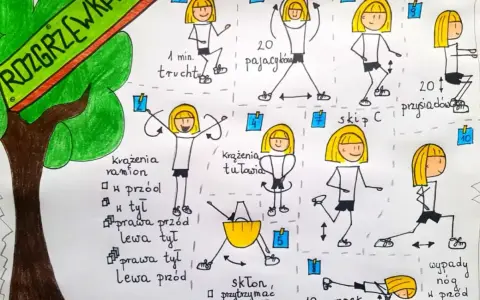 ROZGRZEWKA
1 min.
truchtu
20
pajacyków
skip C
20
przysiadów
krążenia
ramion
w przód
w tył
prawa przód
lewa tył
prawa tył
lewa przód
krążenia
tułowia
4
5
10
skłon
przytrzymać
wypady
nóg
w przód